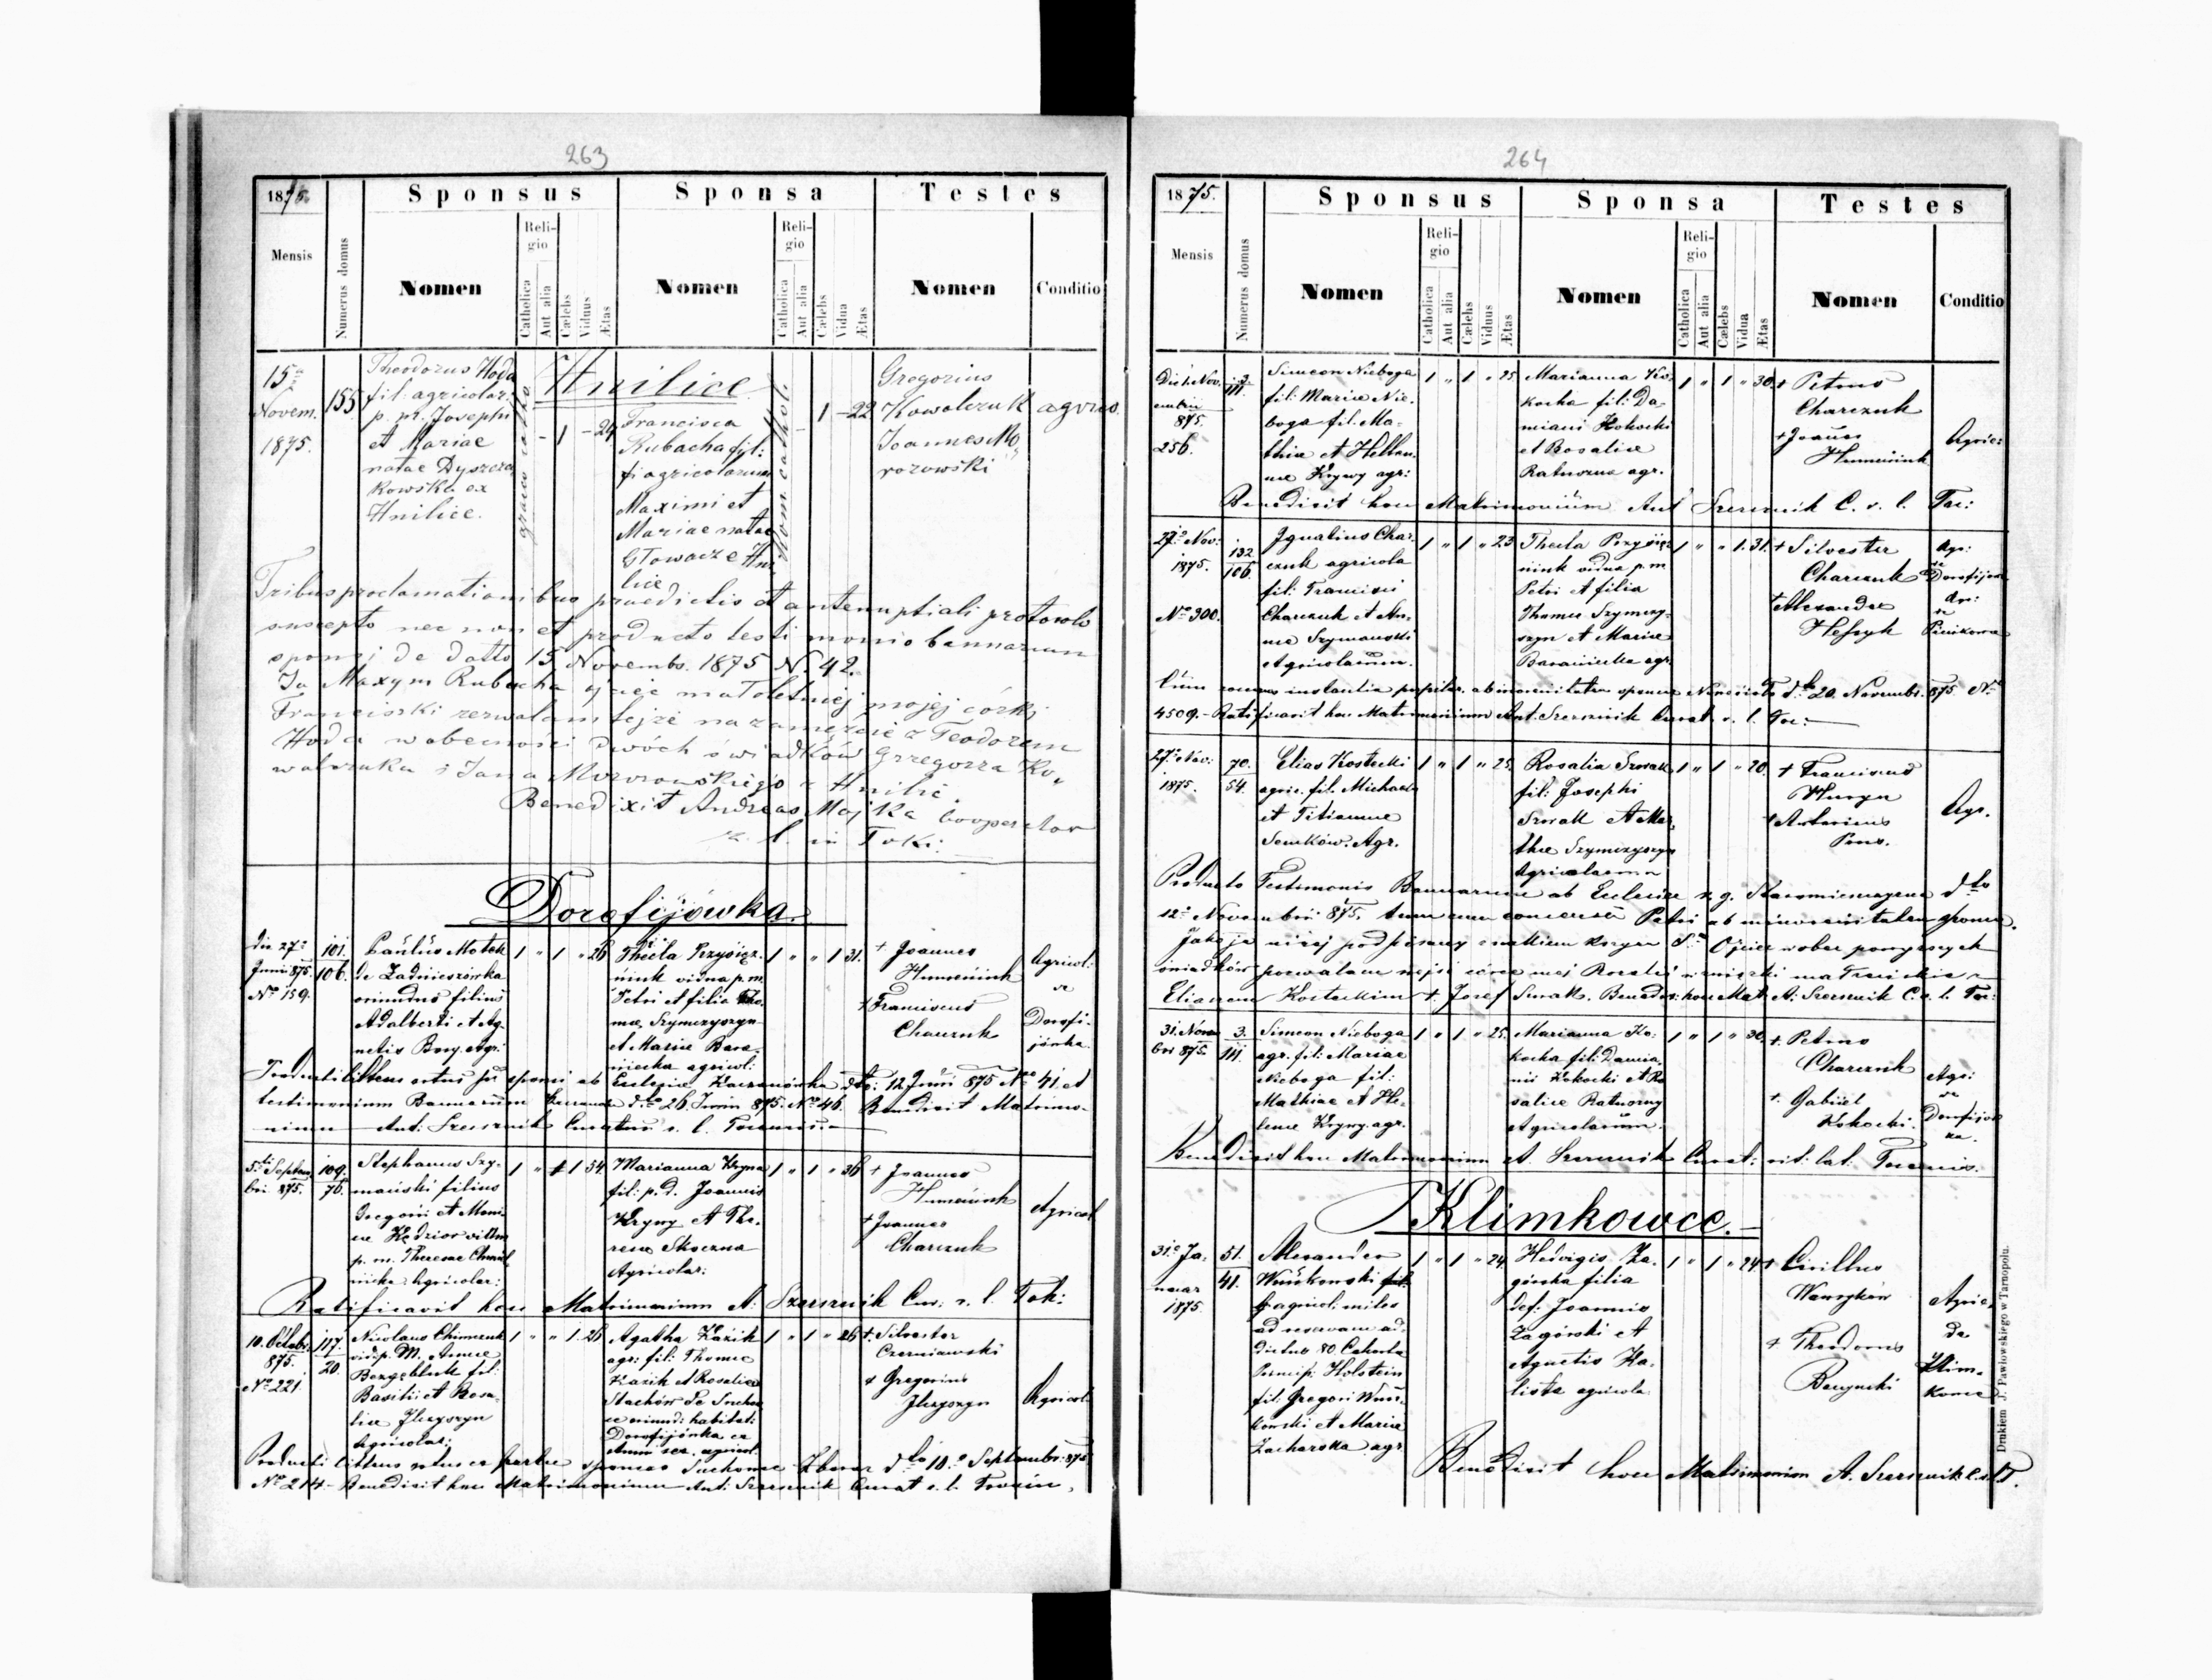 263
1875.
Sponsus
Sponsa
Testes
Mensis
Numerus domus
Nomen
Religio
Catholica
Aut alia
Cælebs
Viduus
Ætas
Nomen
Religio
Catholica
Aut alia
Cælebs
Vidua
Ætas
Nomen
Conditio
Hnilice
15ª
Novem.
1875.
155
Theodorus Hoda
fil. agricolar.
p. pr. Josephi
et Mariae
natae Dyszcza
kowska ex
Hnilice.
graeco cathol.
- 1 - 24
Francisca
Rubacha fil:
fi agricolarum
Maximi et
Mariae natae
Głowacz e Hni
lice
Rom. cathol.
1 - 22
Gregorius
Kowalczuk
Joannes Mo
rozowski
agricol.
Tribus proclamationibus praedictis et antenuptiali protocolo
suscepto nec non et producto testimonio bannorum
sponsi de datto 15 Novembr. 1875 N. 42.
Ja Maxym Rubacha ojciec małoletniej mojej córki
Franciszki zezwalam tejże na zamęzcie z Teodorem
Hoda w obecności dwóch świadków Grzegorza Ko„
walczuka i Jana Morozowskiego z Hnilic.
Benedixit Andreas Majka Cooperator
r. l. in Toki.
Dorofijówka.
die 27ª
Junii 875.
Nº 159.
101.
106.
Paulus Motok
de Zadnieszówka
oriundus filius
Adalberti et Ag-
netis agri:
1 „ 1 „ 26
Thecla Przysięż-
niuk vidua p. m.
Petri et filia Tho-
mae Szymczyszyn
et Mariae Bara-
niecka agricol:
1 „ „ 1 31.
+ Joannes
Humeniuk
+ Franciscus
Charczuk
Agricol:
de
Dorofi-
jówka.
Producti litteris ortus sui sponsi ab Ecclesiae Kaczanówka dto: 12 Junii 875 Nº 41. et
testimonium Bannorum dto 26 Junii 875. Nº 46. Benedixit Matrimo-
nium Ant: Szersznik Curatus r. l. Tocensis.
5ti Septem
bri 875.
109.
76.
Stephanus Szy-
mański filius
Gregorii et Moni-
cae Kędzior viduus
p. m. Theresae Chmiel
nicka Agricolar:
1 „ 1 54
Marianna Kryna
fil: p. d. Joannis
Kryny et The-
resae Skoczna
Agricolar:
1 „ 1 „ 36
+ Joannes
Humeniuk
+ Joannes
Charczuk
Agricol
Ratificavit hoc Matrimonium A: Szersznik Cur: r. l. Tok:
10. Octobri
875.
Nº 221.
117.
20.
Nicolaus Chimczuk
vid. p. M. Annae
fil.
Basilii et Rosa-
liae Ilczyszyn
Agricolar:
1 „ „ 1 26
Agatha Kazik
agr: fil: Thomae
Kazik et Rosaliae
Stachów de Sucho
oriund: habitat:
Dorofijówka ex
agricol.
1 „ 1 „ 26
+. Silvester
Czerniawski
+ Gregorius
Ilczyszyn
Agricol
Producti litteris ortus ex parte sponsae Zbaraz dto 10º Septembri 875
Nº 214 - Benedixit hoc Matrimonium Ant: Szersznik Curat r. l. Tocén.
264
1875.
Sponsus
Sponsa
Testes
Mensis
Numerus domus
Nomen
Religio
Catholica
Aut alia
Cælebs
Viduus
Ætas
Nomen
Religio
Catholica
Aut alia
Cælebs
Vidua
Ætas
Nomen
Conditio
Die 1. Nov.
embri
875.
256.
3.
111.
Simeon Nieboga
fil: Mariae Nie-
boga fil. Ma-
thiae et Hellan-
nae Krywy agr:
1 „ 1 „ 25
Marianna Ko-
kocka fil: Da-
miani Kokocki
et Rosaliae
Ratuszna agr.
1 „ 1 „ 30.
+ Petrus
Charczuk
+ Joañes
Humeniuk
Agric:
Benedixit hoc Matrimonium Ant Szersznik C. r. l. Toc:
27º Nov:
1875.
Nº 300.
132
106.
Ignatius Char-
czuk agricola
fil: Francisci
Charczuk et An-
nae Szymanski
Agricolarum.
1 „ 1 „ 23
Thecla Przysięż-
niuk vidua p. m
Petri et filia
Thomae Szymczy-
szyn et Mariae
Baraniecka agr.
1 „ „ 1. 31.
+ Silvester
Charczuk
+ Alexander
Hefzyk
Agr:
de Dorofijow
Agr:
de
Pieńkowce
Cum instantia pupilar. ab minorenitatem sponsae dto 20. Novembr. 875 Nº
4509. - Ratificavit hoc Matrimonium Ant. Szersznik Curat. r. l. Toc:
27. Nov:
1875.
70.
54.
Elias Kostecki
agric. fil. Michaelis
et Titiannae
Senków. Agr.
1 „ 1 „ 25.
Rosalia Szwak
fil: Josephi
Szwak et Mar-
thae Szymczyszyn
Agricolarum
1 „ 1 „ 20.
+ Franciscus
Huryn
+ Antonius
Agr.
Producto Testimonio Bannorum ab Ecclesiae r. g. Staromieszczyna dto
12º Novembri 875. tum cum consensu Patri ab minorenitatem sponsae.
Jako ja niżej podpisany znakiem krzyża Sº Ojciec wobec powyższych
świadków pozwalam mojej córce Rosalii małzeńskie z
Eliaszem Kosteckim +. Josef Szwak. Bened. hoc Mat: A: Szersznik C. r. l. Toc:
31. Novem
bri 875.
3.
111.
Simeon Nieboga
agr. fil: Mariae
Nieboga fil:
Mathiae et He-
lenae Krywy. agr.
1 „ 1 „ 25.
Marianna Ko-
kocka fil: Damia-
nii Kokocki et Ro
saliae Ratuszny
Agricolarum.
1 „ 1 „ 30.
+. Petrus
Charczuk
+. Gabriel
Kokocki.
Agr:
de
Dorofijow
ka.
Benedixit hoc Matrimonium A. Szersznik Curat: rit: lat: Tocensis.
Klimkowce.
31º Ja-
nuar
1875.
51.
41.
Alexander
Wnukowski fil:
agricol: miles
ad reservam ad-
dictus 80 Cohorta
Princip: Holstein
fil: Gregori Wnu-
kowski et Mariae
Zacharska agr.
1 „ 1 „ 24
Hedvigis Za-
górska filia
def: Joannis
Zagórski et
Agnetis Ka-
lista agricola.
1 „ 1 „ 24
+ Cirillus
Wawryków
+ Theodorus
Agric.
de
Klim-
kowce
Benedixit hoc Matrimonium A. Szersznik C. r. l. T.
Drukiem J. Pawłowskiego w Tarnopolu.